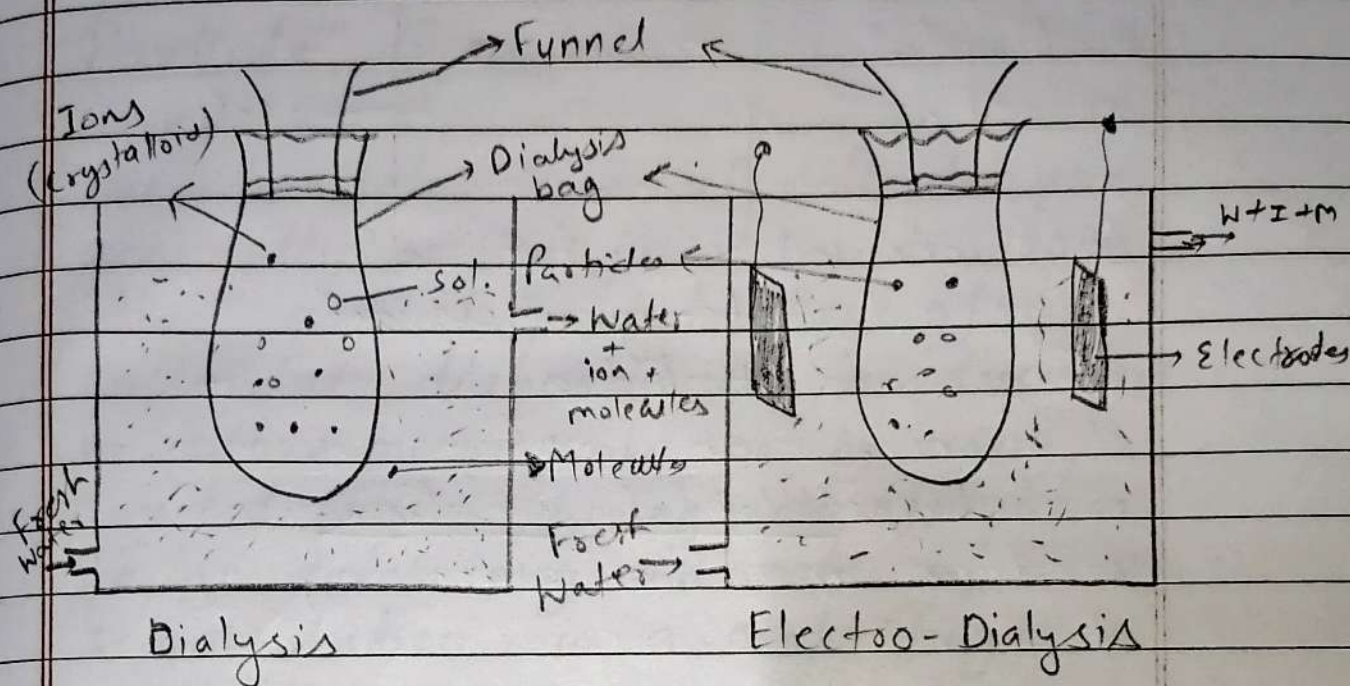 Funnel
Ions
(Crystalloid)
Dialysis
bag
W+I+M
Sol. Particles
→ Water
+
ion +
molecules
Electrodes
Molecules
Fresh
Water
Fresh
Water
Dialysis
Electro-Dialysis